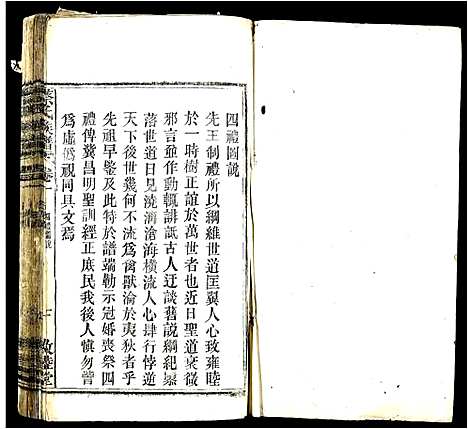 四禮圖說
先王制禮所以綱維世道匡翼人心致雍睦
於一時樹正誼於萬世者也近日聖道衰微
邪言並作動輒誹詆古人迂談舊說綱紀
蕩世道日見澆漓滄海橫流人心肆行悖逆
天下後世幾何不流為禽獸淪於夷狄者乎
先祖早鑒及此特於譜端勒示冠婚喪祭四
禮俾冀昌明聖訓經正庶民我後人慎勿嘗
為虛偽視同具文焉
氏族譜
四禮圖說
敦睦堂